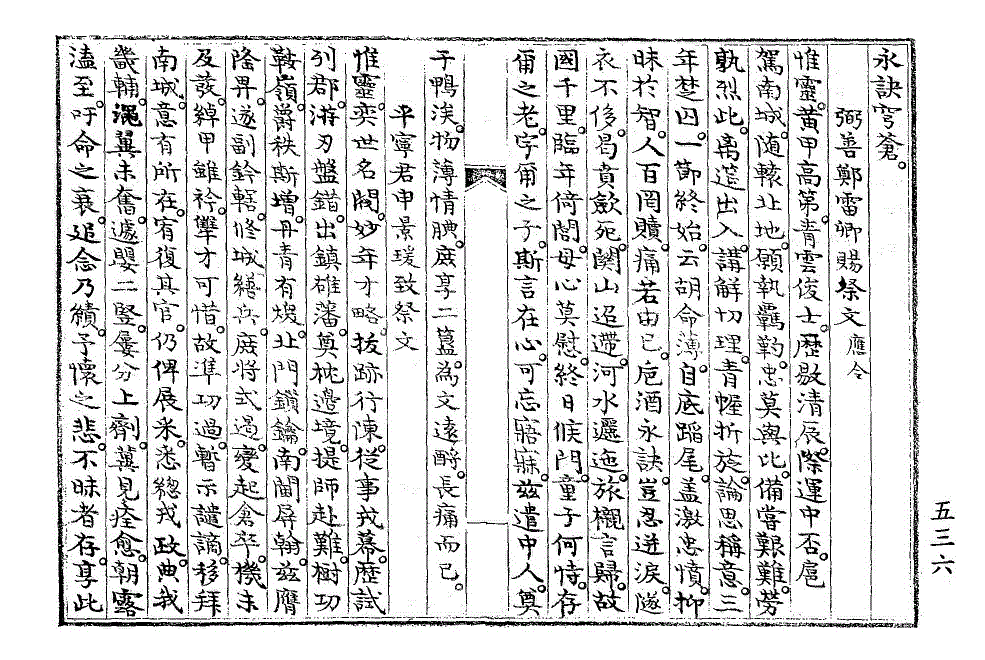 永訣穹蒼
弼善鄭雷卿賜祭文應令
惟靈黃甲高第靑雲俊士歷敭淸辰際運中否扈
駕南城隨轅北地願執羈靮忠莫與比備嘗艱難勞
孰烈此离筵出入講解切理靑幄折旋論思稱意三
年楚囚一節終始云胡命薄自底蹈尾蓋激忠憤抑
昧於智人百罔贖痛若由已巵酒永訣豈忍迸淚隧
衣不侈曷賁斂死關山迢遰河水邐迤旅櫬言歸故
國千里臨年倚閭母心莫慰終日候門童子何恃存
爾之老字爾之子斯言在心可忘寤寐玆遣中人奠
于鴨涘物薄情腆庶享二簋爲文遠酹長痛而已
平寧君申景瑗致祭文
惟靈奕世名閥妙年才略拔跡行陳從事戎幕歷試
列郡游刃盤錯出鎭雄藩奠枕邊境提師赴難樹功
鞍嶺爵秩斯增丹靑有煥北門鎖鑰南閫屛翰玆膺
隆畀遂副鈴轄修城繕兵庶將式遏變起倉卒機未
及發綽甲雖衿犨才可惜故準功過暫示譴謫移拜
南城意有所在宥復其官仍俾展采悉總戎政典我
畿輔澠翼未奮遽嬰二竪屢分上劑冀見痊愈朝露
溘至吁命之衰追念乃績予懷之悲不昧者存享此
五三六